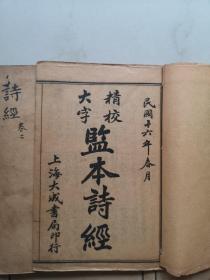 民國十六年春月
精校
大字
監本詩經
上海大成書局印行
詩經
卷二